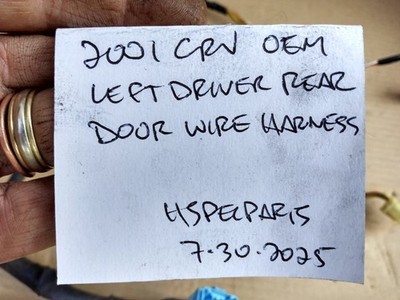 2001 CRV OEM
LEFT DRIVER REAR
DOOR WIRE HARNESS
HSPECPARTS
7.30.2025